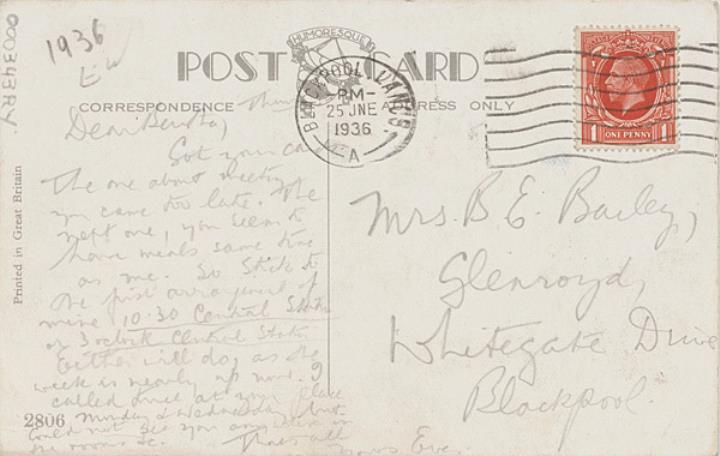 1936
EW
00343RY
HUMORESQUE
POST CARD
CORRESPONDENCE
ADDRESS ONLY
BLACKPOOL LANCS.
PM-
25 JNE
1936
A
1 ONE PENNY 1
Printed in Great Britain
Dear Bertha,
Got your card
The one about meeting
you came too late. The
next one, you seem to
have meals same time
as me. So stick to
the first arrangement of
mine 10-30 Central Station
or 3 oclock Central Station
Either will do, as the
week is nearly up now. I
called twice at your place
Monday & Wednesday but
could not see you anywhere in
the rooms &c.
That's all
yours Eve.
2806
Mrs. B E. Bailey,
Glenroyd,
Whitegate Drive
Blackpool.